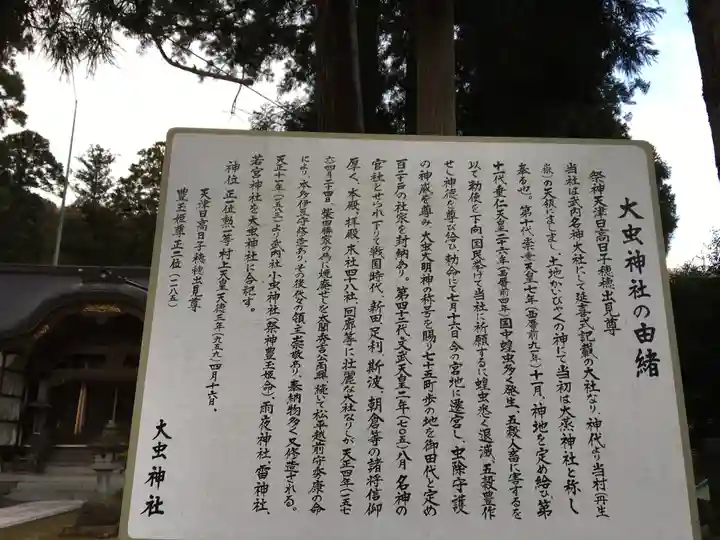 大虫神社の由緒
祭神天津日高日子穂穂出見尊
当社は武内名神大社にして延喜式記載の大社なり、神代より当村(再生
嶽)の天嶺にましまし、土地かいびゃくの神にて当初は大蒸神社と称し
奉る也。第十代崇峻天皇七年(西暦前九一年)十一月、神地を定め給ひ、第
十代、垂仁天皇二十六年(西暦前四年)国中蝗虫多く発生、五穀人畜に害するを
以て勅使を下向、国民挙げて当社に祈願するに蝗虫悉く退滅、五穀豊作
せし神徳を尊び給ひ、勅命にて七月十六日今の宮地に遷宮し、虫除守護
の神威を尊み、大虫大明神の称号を賜り七十五町歩の地を御田代と定め
百二十戸の社家を封納あり。第四十二代文武天皇二年(七〇五)八月名神の
官社とせられ下りて戦国時代、新田足利、斯波、朝倉等の諸将信仰
厚く、本殿、拝殿、末社四十八社、回廊等に壮麗な大社なりしが天正四年(一五七
六)四月二十四日、柴田勝家の為に焼棄せしを太閤秀吉公再興、続いて松平越前守泰康の命
により、本多伊豆守修造あり、その後代々の領主崇敬あり、奉納物多く又修造される。
天正十一年(一五八三)より武内社小虫神社(祭神豊玉姫命)、雨夜神社、雷神社、
若宮神社を大虫神社に合祀す。
神位 正一位勲一等 村上天皇天徳三年(九五九)四月十六日、
天津日高日子穂穂出見尊
豊玉姫尊正二位(一二八五)
大虫神社